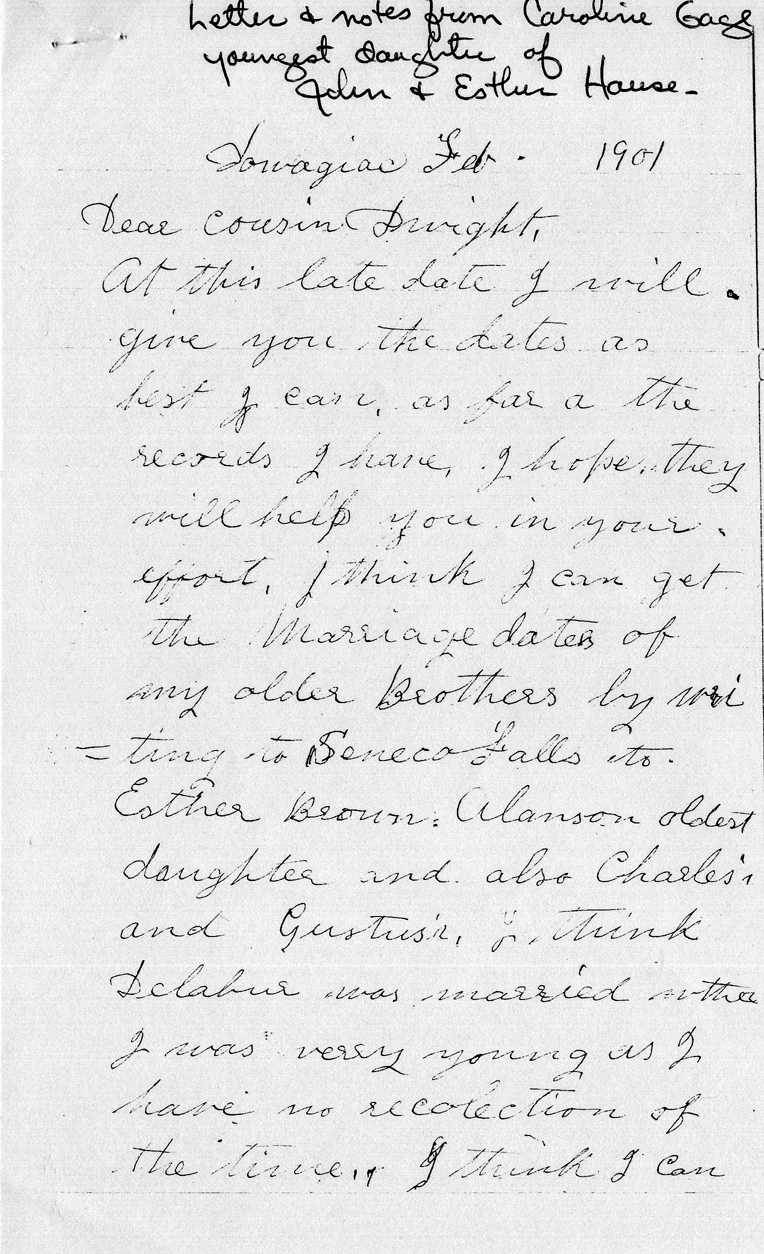 Letter & notes from Caroline Gage
youngest daughter of
John & Esther Hause -
Dowagiac Feb. 1901
Dear cousin Dwight,
At this late date I will
give you the dates as
best I can, as far a the
records I have, I hope they
will help you in your
effort, I think I can get
the Marriage dates of
my older Brothers by wri
= ting to Seneca Falls to
Esther Brown. Alanson oldest
daughter and also Charles's
and Gustus's, I think
was married
I was verry young as I
have no recolection of
the time., I think I can